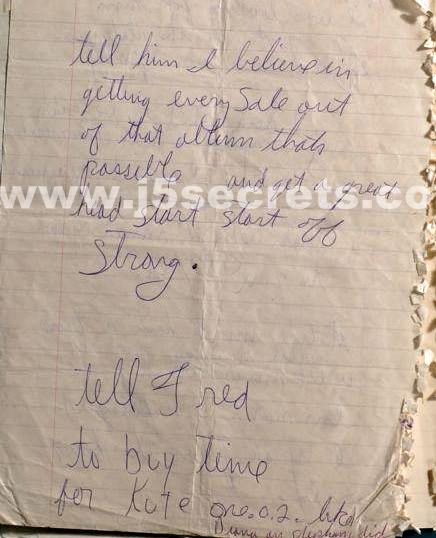 tell him I believe in
getting every Sale out
of that album thats
possible and get a great
www.j5secrets.co
head start start off
Strong.
tell Fred
to buy time
for Kute